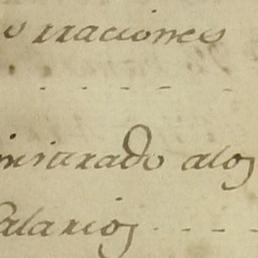 s rraciones
inistrado alos
salarios